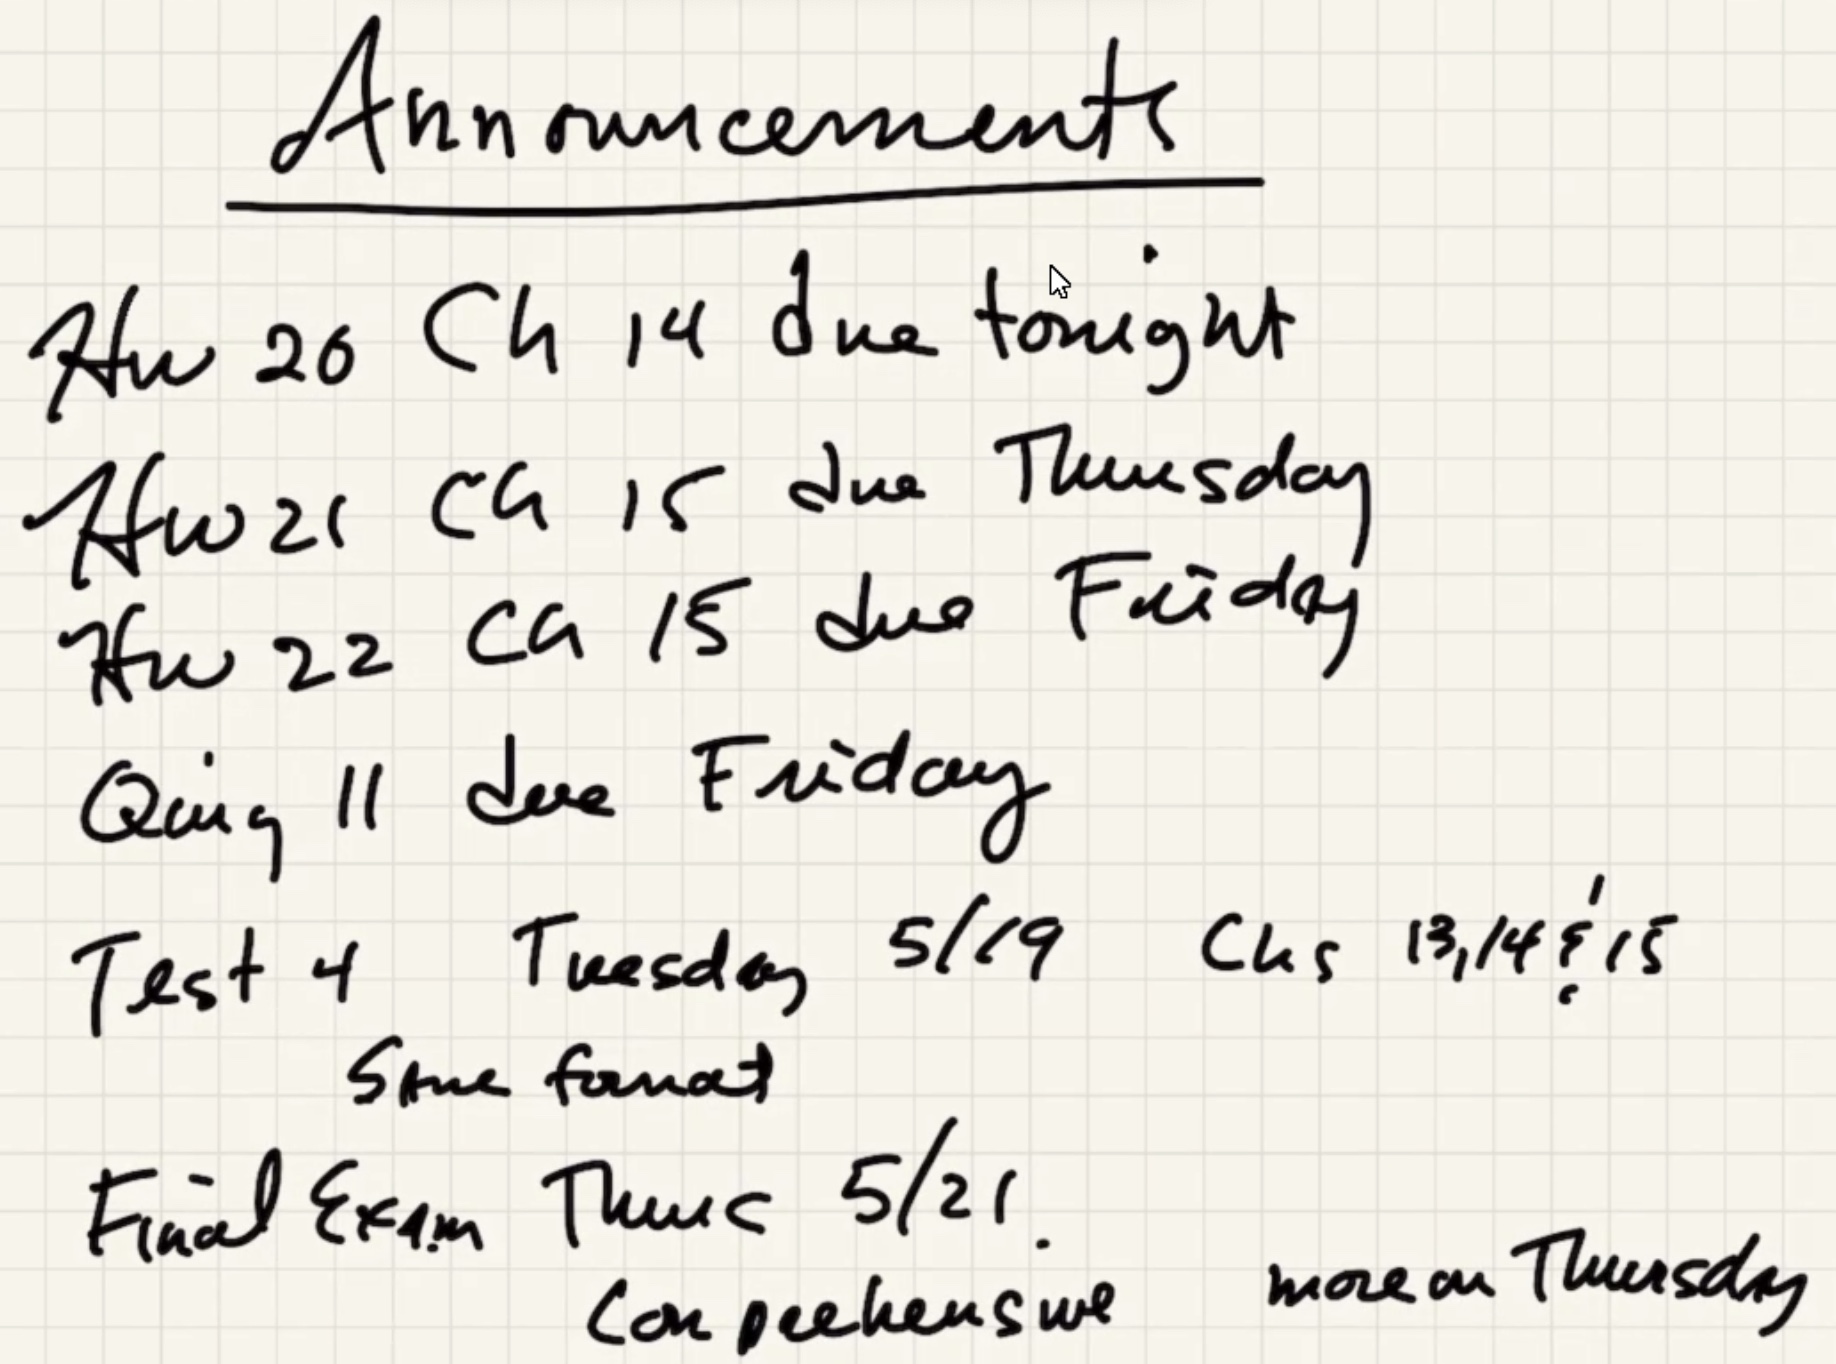 Announcements
HW 20 Ch 14 due tonight
HW 21 Ch 15 due Thursday
HW 22 Ch 15 due Friday
Quiz 11 due Friday
Test 4 Tuesday 5/19 Chs 13, 14 & 15
Same format
Final Exam Thurs 5/21.
Comprehensive more on Thursday